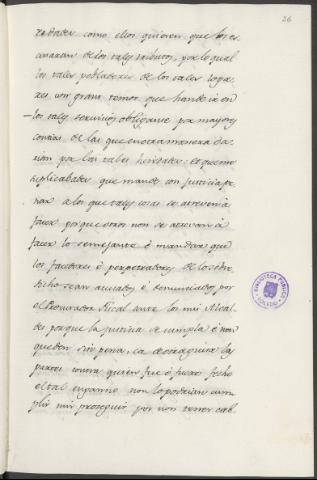 26
redades, como ellos quieren, que los es
cusaran de los tales tributos, por lo qual
los tales pobladores de los tales logа
res con gran temor que han de ir en
los tales servicios obligarse por mayores
contias de las que en otra manera da
rian por los tales heredades, et que me
suplicabades que mande con Justicia pe
nar a los que tales cosas se atreven á
facer, porque otros non se atrevan á
facer lo semejante é mandare que
los facedores é perpetradores de lo sobre
dicho sean acusados é denunciados por
el Procurador Fiscal ante los mis Alcal
des por que la justicia se cumpla é non
queden sin pena, ca de otra guisa las
partes contra quien fue ó fuere fecho
el tal engaño non lo podrian cum
plir nin proseguir por non tener cab
BIBLIOTECA PUBLICA
TOLEDO